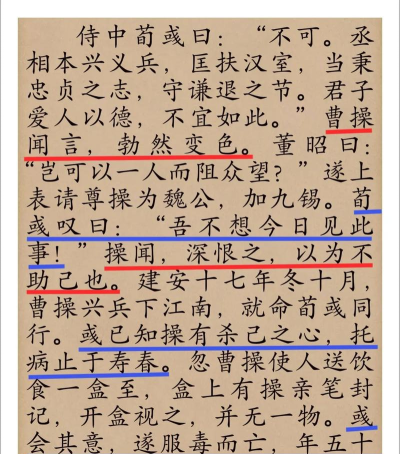 侍中荀彧曰：“不可。丞
相本兴义兵，匡扶汉室，当秉
忠贞之志，守谦退之节。君子
爱人以德，不宜如此。”曹操
闻言，勃然变色。董昭曰：
“岂可以一人而阻众望？”遂上
表请尊操为魏公，加九锡。荀
彧叹曰：“吾不想今日见此
事！”操闻，深恨之，以为不
助己也。建安十七年冬十月，
曹操兴兵下江南，就命荀彧同
行。彧已知操有杀己之心，托
病止于寿春。忽曹操使人送饮
食一盒至，盒上有操亲笔封
记，开盒视之，并无一物。彧
会其意，遂服毒而亡，年五十